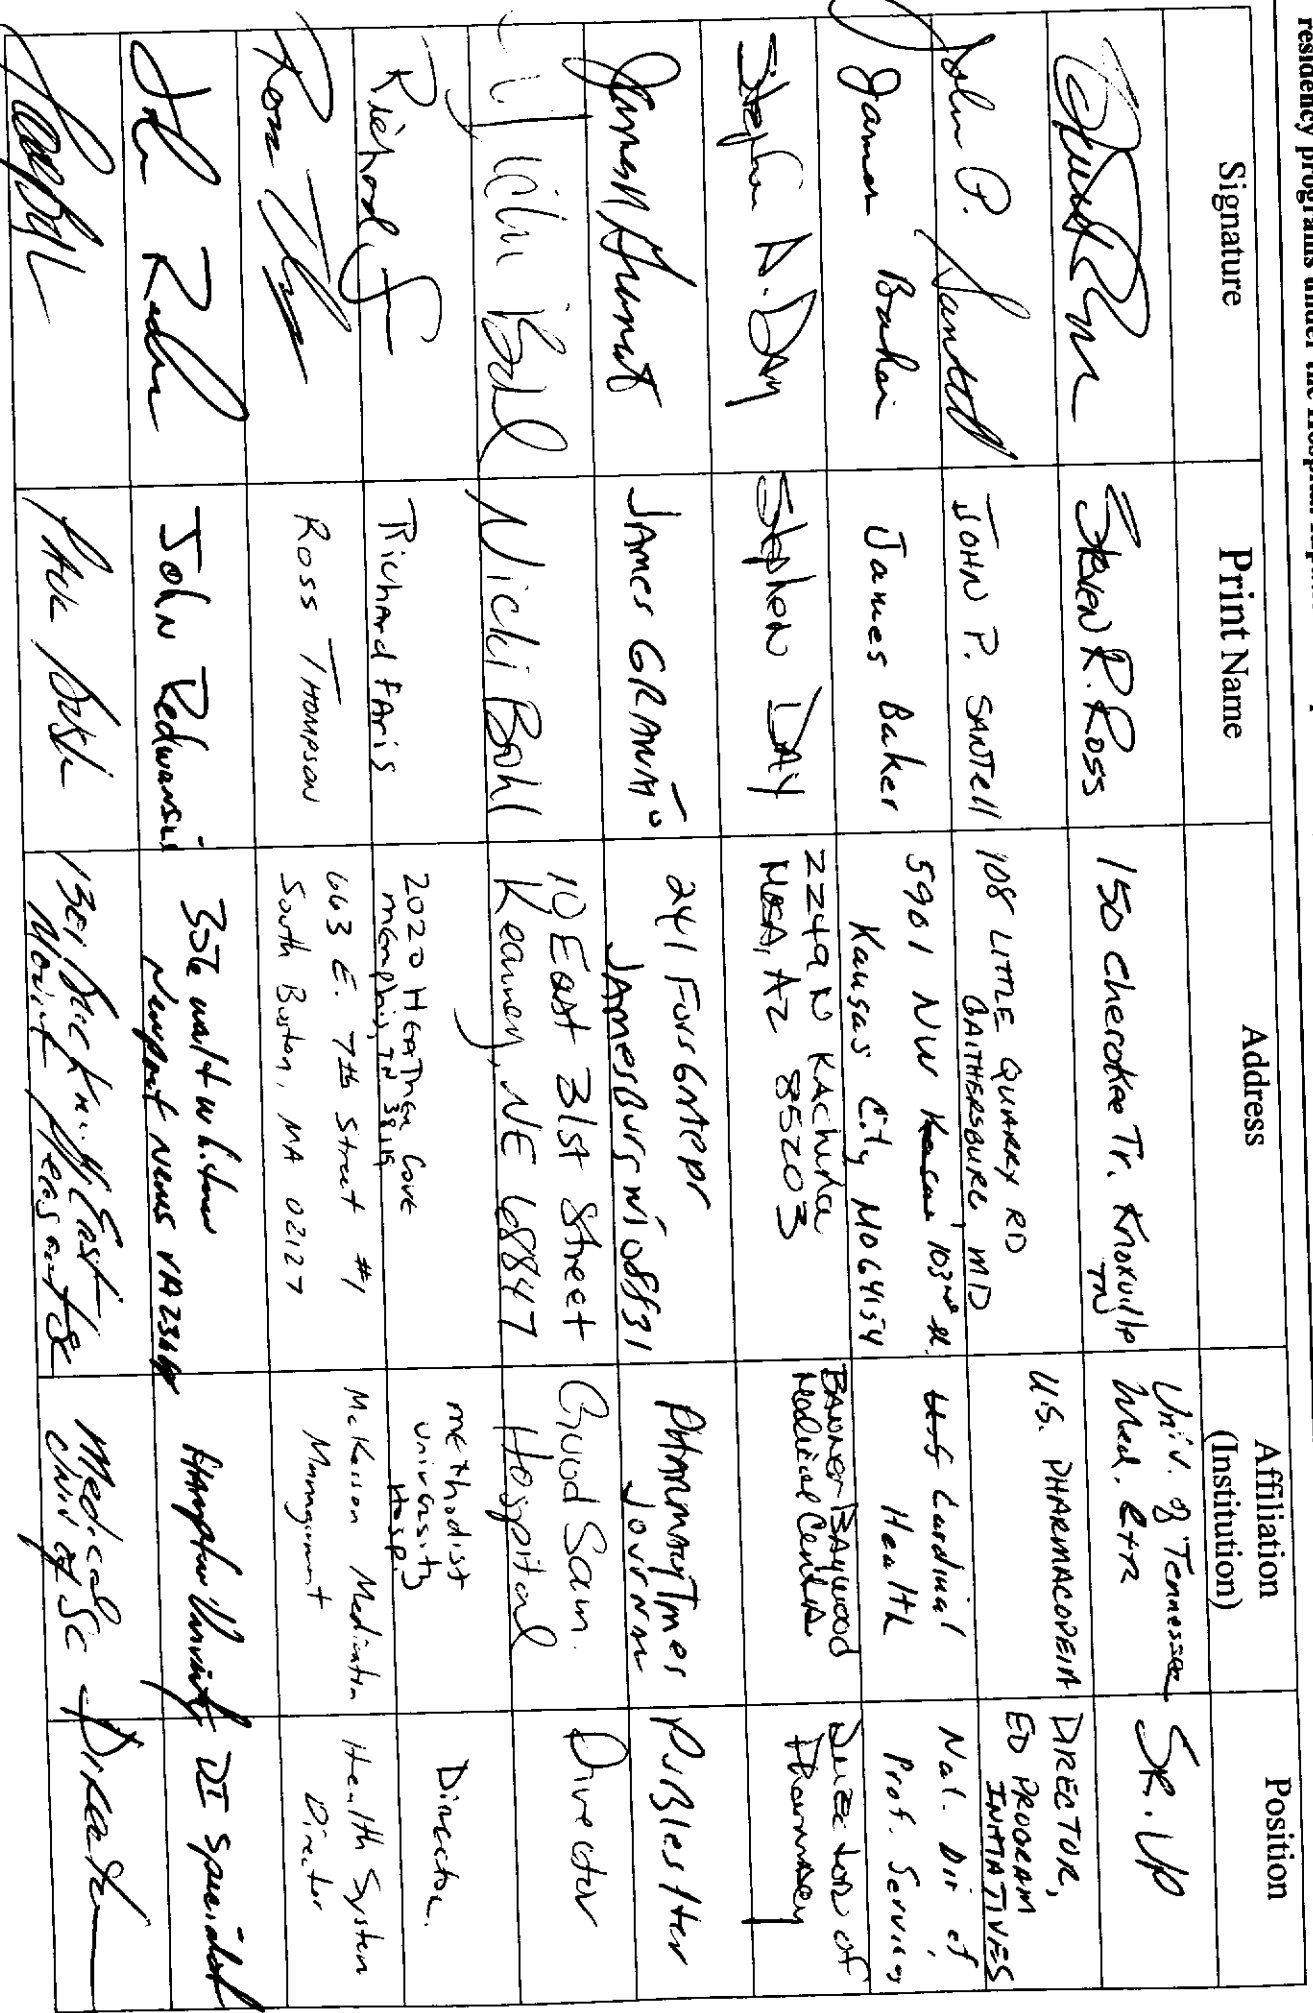 residency programs under the Hospital
Signature Print Name Address Affiliation (Institution) Position
Steven R. Ross
150 Cherokee Tr. Knoxville
TN
Univ. of Tennessee
Med. Ctr
SR. VP
John P. Santell
JOHN P. SANTell
108 LITTLE QUARRY RD
GAITHERSBURG MD
U.S. PHARMACOPEIA
DIRECTOR,
ED PROGRAM
INITIATIVES
James Baker
James Baker
5901 NW 103rd St.
Kansas City MO 64154
Cardinal
Health
Nat. Dir of
Prof. Services
Stephen A. Day
Stephen DAY
2249 N KAChina
MESA, AZ 85203
BANNER BAYWOOD
Medical Center
Director of
Pharmacy
James GRANATO
241 ForsGate Dr
JAmesburg NJ 08831
PHARMACY Times
Journal
Publisher
Nicki Bohl
10 East 31st Street
Kearney, NE 68847
Good Sam.
Hospital
Director
Richard
Richard FAris
2020 HeaTher Cove
memphis, TN 38119
meThodist
University
Hosp.
Director
Ross
Ross THOMPSON
663 E. 7th Street #1
South Boston, MA 02127
McKesson Medication
Management
Health System
Director
John
John Redwanski
Newport News VA
Hampton University
DI Specialist
Mount Pleasant SC
Medical
Univ of SC
Director